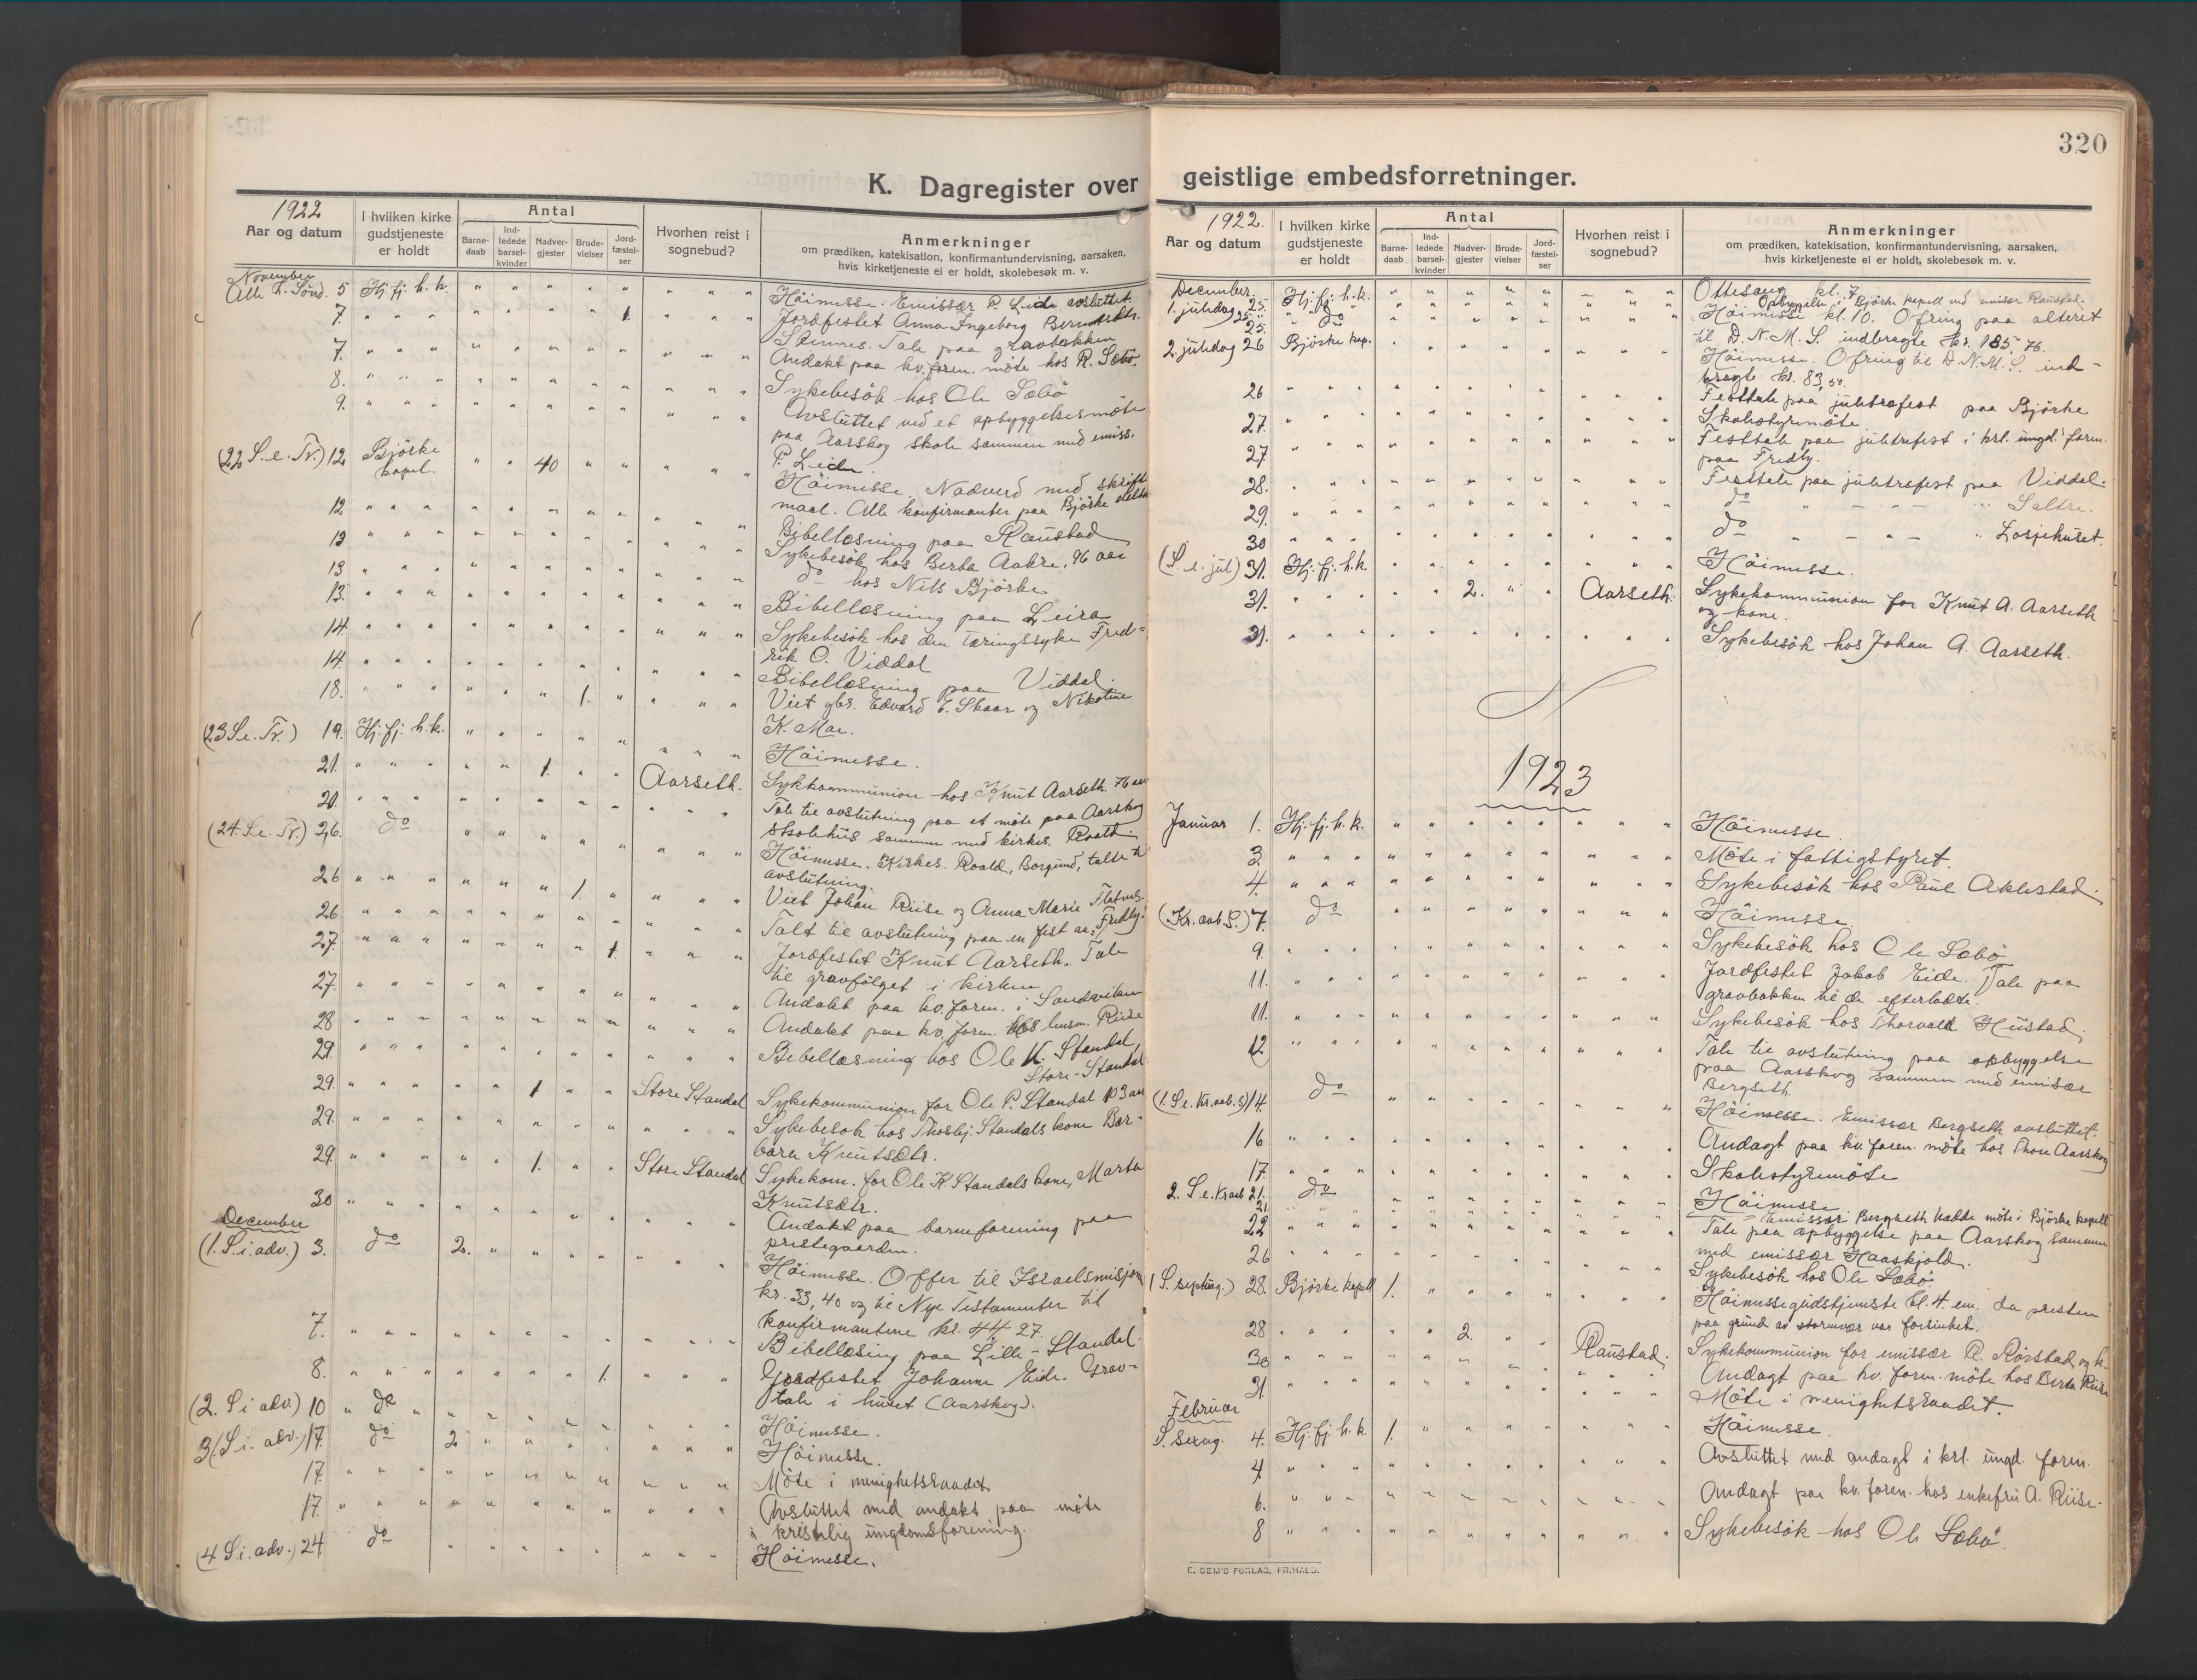 320
K. Dagregister over
geistlige embedsforretninger.
1922
Aar og datum
I hvilken kirke gudstjeneste er holdt
Antal
Barne-daab
Ind-ledede barsel-kvinder
Nadver-gjester
Brude-vielser
Jord-fæstel-ser
Hvorhen reist i sognebud?
Anmerkninger
om prædiken, katekisation, konfirmantundervisning, aarsaken,
hvis kirketjeneste ei er holdt, skolebesøk m. v.
November
Alle h. Sønd. 5 Hj. fj. h. k. Höimesse. Emissær P. Leide avsluttet.
7. 1. Jordfestet Anna Ingeborg Berntsdtr.
Stennes. Tale paa gravbakken
7. Andakt paa kv. foren. möte hos R. Sæbö.
8. Sykebesök hos Ole Sæbö
9. Avsluttet ved et opbyggelsesmöte
paa Aarskog skole sammen med emiss.
P. Leide.
(22 S. e. Tr.) 12 Bjørke kapel. 40 Höimesse. Nadverd med skrifte
maal. Alle konfirmanter paa Bjørke deltok
12 Bibellæsning paa Raustad
13 Sykebesök hos Berta Aakre, 96 aar
13 do hos Nils Bjørke
13. Bibellæsning paa Leira
14. Sykebesök hos den tæringssyke Fred-
rik O. Viddal
14. Bibellæsning paa Viddal.
18. 1. Viet gbr. Edvard E. Skaar og Nikoline
K. Moe.
(23 S. e. Tr.) 19. Hj. fj. h. k. Höimesse.
21. 1. Aarseth. Sykkommunion hos Knut Aarseth. 76 aar
20. Tale til avslutning paa et möte paa Aarskog
skolehus sammen med kirkes. Roald
(24 S. e. Tr.) 26. do Höimesse. Kirkes. Roald, Borgund, talte til
avslutning.
26 1. Viet Johan Riise og Anna Marie
26 Talt til avslutning paa en fest paa Fredly.
27. 1. Jordfestet Knut Aarseth. Tale
til gravfølget i kirken
27. Andakt paa kv. foren. i Sandviken
28 Andakt paa kv. foren. hos lensm. Riise
29. Bibellæsning hos Ole K. Standal,
Store-Standal
29. 1 Store Standal Sykekommunion for Ole P. Standal 103 aar
29. Sykebesok hos Thorbj. Standals kone Bar-
bara Knutsdtr.
29. 1. Store Standal Sykekom. for Ole K. Standals kone, Marta
Knutsdtr.
30 Andakt paa barneforening paa
prestegaarden.
December
(1. S. i. adv.) 3. do 2. Höimesse. Offer til Israelsmisjon
kr. 33,40 og til Nye Testamenter til
konfirmantene kr. 44,27.
7. Bibellæsing paa Lille-Standal.
8. 1. Jordfestet Johanne Eide. Grav-
tale i huset (Aarskog).
(2. S i adv.) 10 do Höimesse.
3 (S. i. adv.) 17. do 2 Höimesse.
17. Möte i menighetsraadet
17. Avsluttet med andakt paa möte
i kristelig ungdomsforening.
(4 S. i. adv.) 24 do Höimesse.
1922.
Aar og datum
I hvilken kirke gudstjeneste er holdt
Antal
Barne-daab
Ind-ledede barsel-kvinder
Nadver-gjester
Brude-vielser
Jord-fæstel-ser
Hvorhen reist i sognebud?
Anmerkninger
om prædiken, katekisation, konfirmantundervisning, aarsaken,
hvis kirketjeneste ei er holdt, skolebesøk m. v.
December.
1. juledag 25. Hj. fj. h. k. Ottesang kl. 7
25. Opbyggelse i Bjørke kapell ved emisær Raustad.
25. do Höimesse kl. 10. Ofring paa alteret
til D. N. M. S. indbragte kr. 185,76.
2. juledag 26 Bjørke kap. Höimesse. Ofring til D. N. M. S. ind-
bragte kr. 83,50.
26 Festtale paa juletræfest paa Bjørke
27. Skolestyremöte
27 Festtale paa juletrefest i krl. ungd. foren.
paa Fredly.
28. Festtale paa juletræfest paa Viddal.
29. do Saltre.
30 do Losjehuset.
(S. e. jul) 31. Hj. fj. h. k. Höimesse.
31. 2. Aarseth. Sykekommunion for Knut A. Aarseth
og kone.
31. Sykebesök hos Johan A. Aarseth.
1923
Januar 1. Hj. fj. h. k. Höimesse.
3. Möte i fattigstyret.
4. Sykebesök hos Paul Aklestad.
(Kr. aab. S.) 7. do Höimesse
9. Sykebesök hos Ole Sæbö
11. Jordfestet Jakob Eide. Tale paa
gravbakken til de efterladte.
11. Sykebesök hos Thorvald Hustad.
12 Tale til avslutning paa opbyggelse
paa Aarskog sammen med emisær
Bergseth.
(1. S. e. Kr. aab. S) 14. do Höimesse. Emissær Bergseth avsluttet.
16 Andagt paa kv. foren. möte hos Thore Aarskog
17. Skolestyremöte
2. S e. Kr aab 21. do Höimesse
21. Emissær Bergseth hadde möte i Bjørke kapell
22 Tale paa opbyggelse paa Aarskog sammen
med emissær Haaskjold.
26 Sykebesök hos Ole Sæbö.
(S. septuag.) 28. Bjørke kapell 1. Höimessegudstjeneste kl. 4. em. da presten
paa grund av stormvær var forsinket.
28 2. Raustad. Sykekommunion for emissær R. Rörstad og k.
30 Andagt paa kv. foren. möte hos Berta Riise
31 Möte i menighetsraadet.
Februar
S. sexag. 4. Hj. fj. h. k. 1. Höimesse.
4 Avsluttet med andagt i krl. ungd. foren.
6. Andagt paa kv. foren. hos enkefru A. Riise.
8 Sykebesök hos Ole Sæbö.
E. SEM'S FORLAG, FR.HALD.